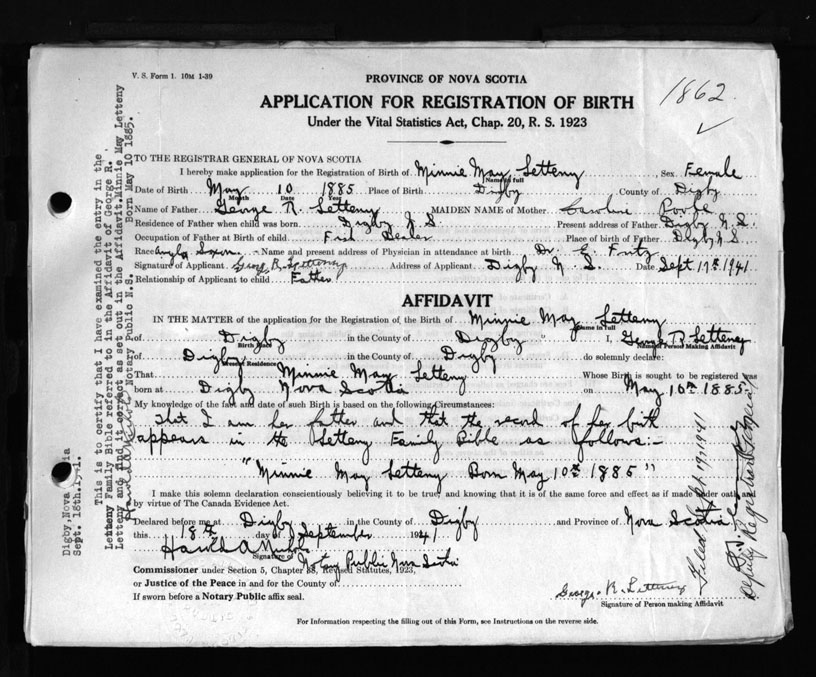 V. S. Form 1. 10M 1-39
PROVINCE OF NOVA SCOTIA
1862
APPLICATION FOR REGISTRATION OF BIRTH
Under the Vital Statistics Act, Chap. 20, R. S. 1923
TO THE REGISTRAR GENERAL OF NOVA SCOTIA
I hereby make application for the Registration of Birth of Minnie May Letteny Sex Female
Name in full
Date of Birth May 10 1885 Place of Birth Digby County of Digby
Month Date Year
Name of Father George R. Letteny MAIDEN NAME of Mother Caroline
Residence of Father when child was born Digby N.S. Present address of Father Digby N.S.
Occupation of Father at Birth of child Fish Dealer Place of birth of Father Digby N S
Race Anglo Saxon Name and present address of Physician in attendance at birth Dr. E. Fritz
Signature of Applicant George R. Letteney Address of Applicant Digby N S. Date Sept 17th 1941
Relationship of Applicant to child Father
AFFIDAVIT
IN THE MATTER of the application for the Registration of the Birth of Minnie May Letteny
Name in Full
of Digby in the County of Digby I, George R Letteney
Birth Place Name of Person Making Affidavit
of Digby in the County of Digby do solemnly declare:
Present Residence
That Minnie May Letteny Whose Birth is sought to be registered was
born at Digby Nova Scotia on May 10th 1885
My knowledge of the fact and date of such Birth is based on the following Circumstances:
That I am her father and that the record of her birth
appears in the Letteny Family Bible as follows:-
"Minnie May Letteny Born May 10th 1885"
I make this solemn declaration conscientiously believing it to be true, and knowing that it is of the same force and effect as if made under oath
by virtue of The Canada Evidence Act.
Declared before me at Digby in the County of Digby and Province of Nova Scotia
this 18th day of September 1941
Harold A Nichols
Signature of Notary Public Nova Scotia
Commissioner under Section 5, Chapter 38, Revised Statutes, 1923,
or Justice of the Peace in and for the County of
If sworn before a Notary Public affix seal.
George R. Letteney
Signature of Person making Affidavit
For Information respecting the filling out of this Form, see Instructions on the reverse side.
This is to certify that I have examined the entry in the
Letteny Family Bible referred to in the Affidavit of George R.
Letteny and find it correct as set out in the Affidavit. Minnie May Letteny
Born May 10 1885.
Harold A Nichols Notary Public N.S.
Digby, Nova Scotia
Sept. 18th. 1941.
Filed Sept 19, 1941
Deputy Registrar General